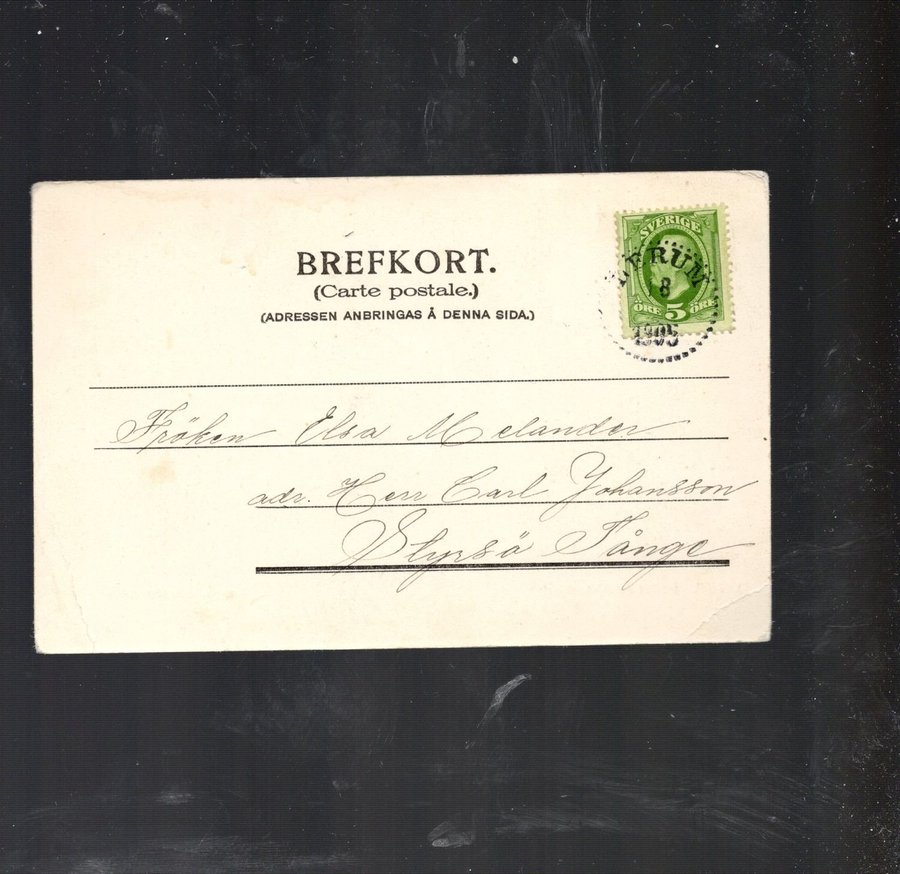 BREFKORT.
(Carte postale.)
(ADRESSEN ANBRINGAS Å DENNA SIDA.)
SVERIGE
LERUM
8
1905
ÖRE 5 ÖRE
Fröken Elsa Melander
adr. Herr Carl Johansson
Styrsö Tånge